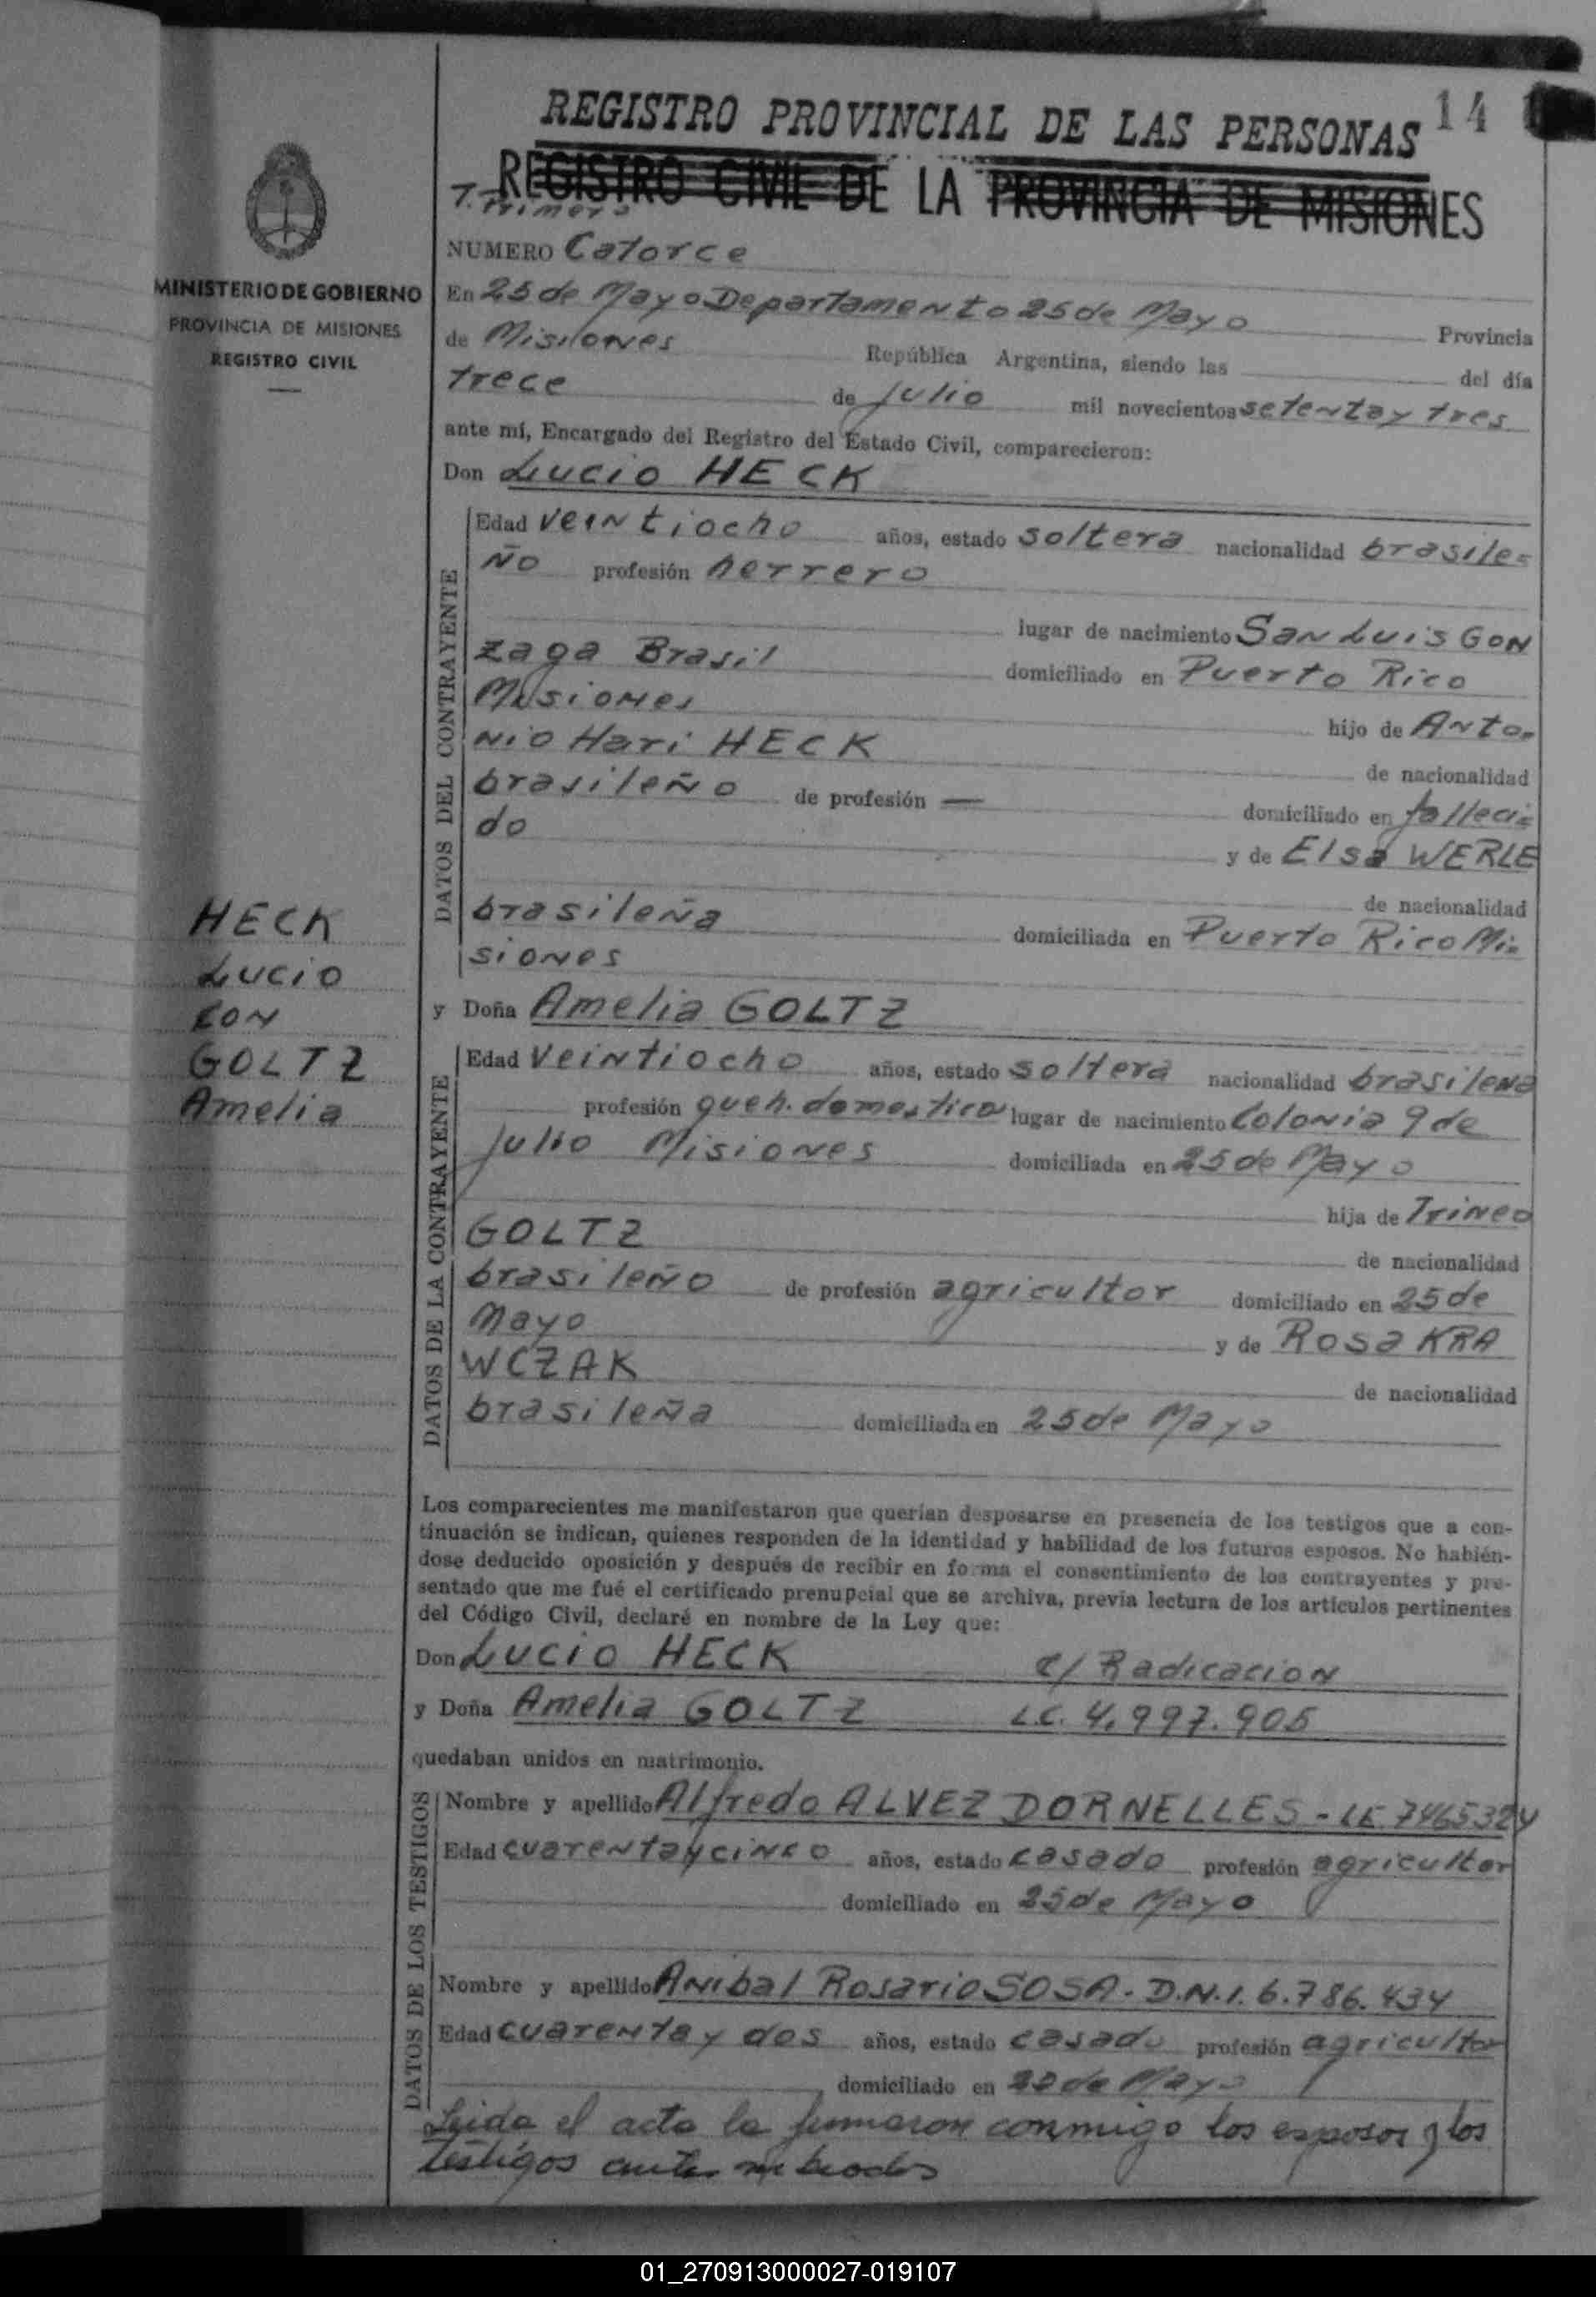 14
REGISTRO PROVINCIAL DE LAS PERSONAS
REGISTRO CIVIL DE LA PROVINCIA DE MISIONES
T. Primero
MINISTERIO DE GOBIERNO
PROVINCIA DE MISIONES
REGISTRO CIVIL
NUMERO Catorce
En 25 de Mayo Departamento 25 de Mayo Provincia
de Misiones República Argentina, siendo las del día
trece de julio mil novecientos setenta y tres
ante mí, Encargado del Registro del Estado Civil, comparecieron:
Don Lucio HECK
DATOS DEL CONTRAYENTE
Edad veintiocho años, estado soltera nacionalidad brasile=
ño profesión herrero
lugar de nacimiento San Luis Gon
zaga Brasil domiciliado en Puerto Rico
Misiones hijo de Anto=
nio Hari HECK de nacionalidad
brasileño de profesión — domiciliado en falleci=
do y de Elsa WERLE
de nacionalidad
brasileña domiciliada en Puerto Rico Mi=
siones
HECK
Lucio
con
GOLTZ
Amelia
y Doña Amelia GOLTZ
DATOS DE LA CONTRAYENTE
Edad veintiocho años, estado soltera nacionalidad brasilena
profesión queh. domestico lugar de nacimiento Colonia 9 de
Julio Misiones domiciliada en 25 de Mayo
hija de Trineo
GOLTZ de nacionalidad
brasileño de profesión agricultor domiciliado en 25 de
Mayo y de Rosa KRA
WCZAK de nacionalidad
brasileña domiciliada en 25 de Mayo
Los comparecientes me manifestaron que querían desposarse en presencia de los testigos que a con-
tinuación se indican, quienes responden de la identidad y habilidad de los futuros esposos. No habién-
dose deducido oposición y después de recibir en forma el consentimiento de los contrayentes y pre-
sentado que me fué el certificado prenupcial que se archiva, previa lectura de los artículos pertinentes
del Código Civil, declaré en nombre de la Ley que:
Don Lucio HECK c/ Radicacion
y Doña Amelia GOLTZ L.C. 4.997.905
quedaban unidos en matrimonio.
DATOS DE LOS TESTIGOS
Nombre y apellido Alfredo ALVEZ DORNELLES - LE 7465324
Edad cuarenta y cinco años, estado casado profesión agricultor
domiciliado en 25 de Mayo
Nombre y apellido Anibal Rosario SOSA. D.N.I. 6.786.434
Edad cuarenta y dos años, estado casado profesión agricultor
domiciliado en 25 de Mayo
Leida el acta la firmaron conmigo los esposos y los
testigos
01_270913000027-019107